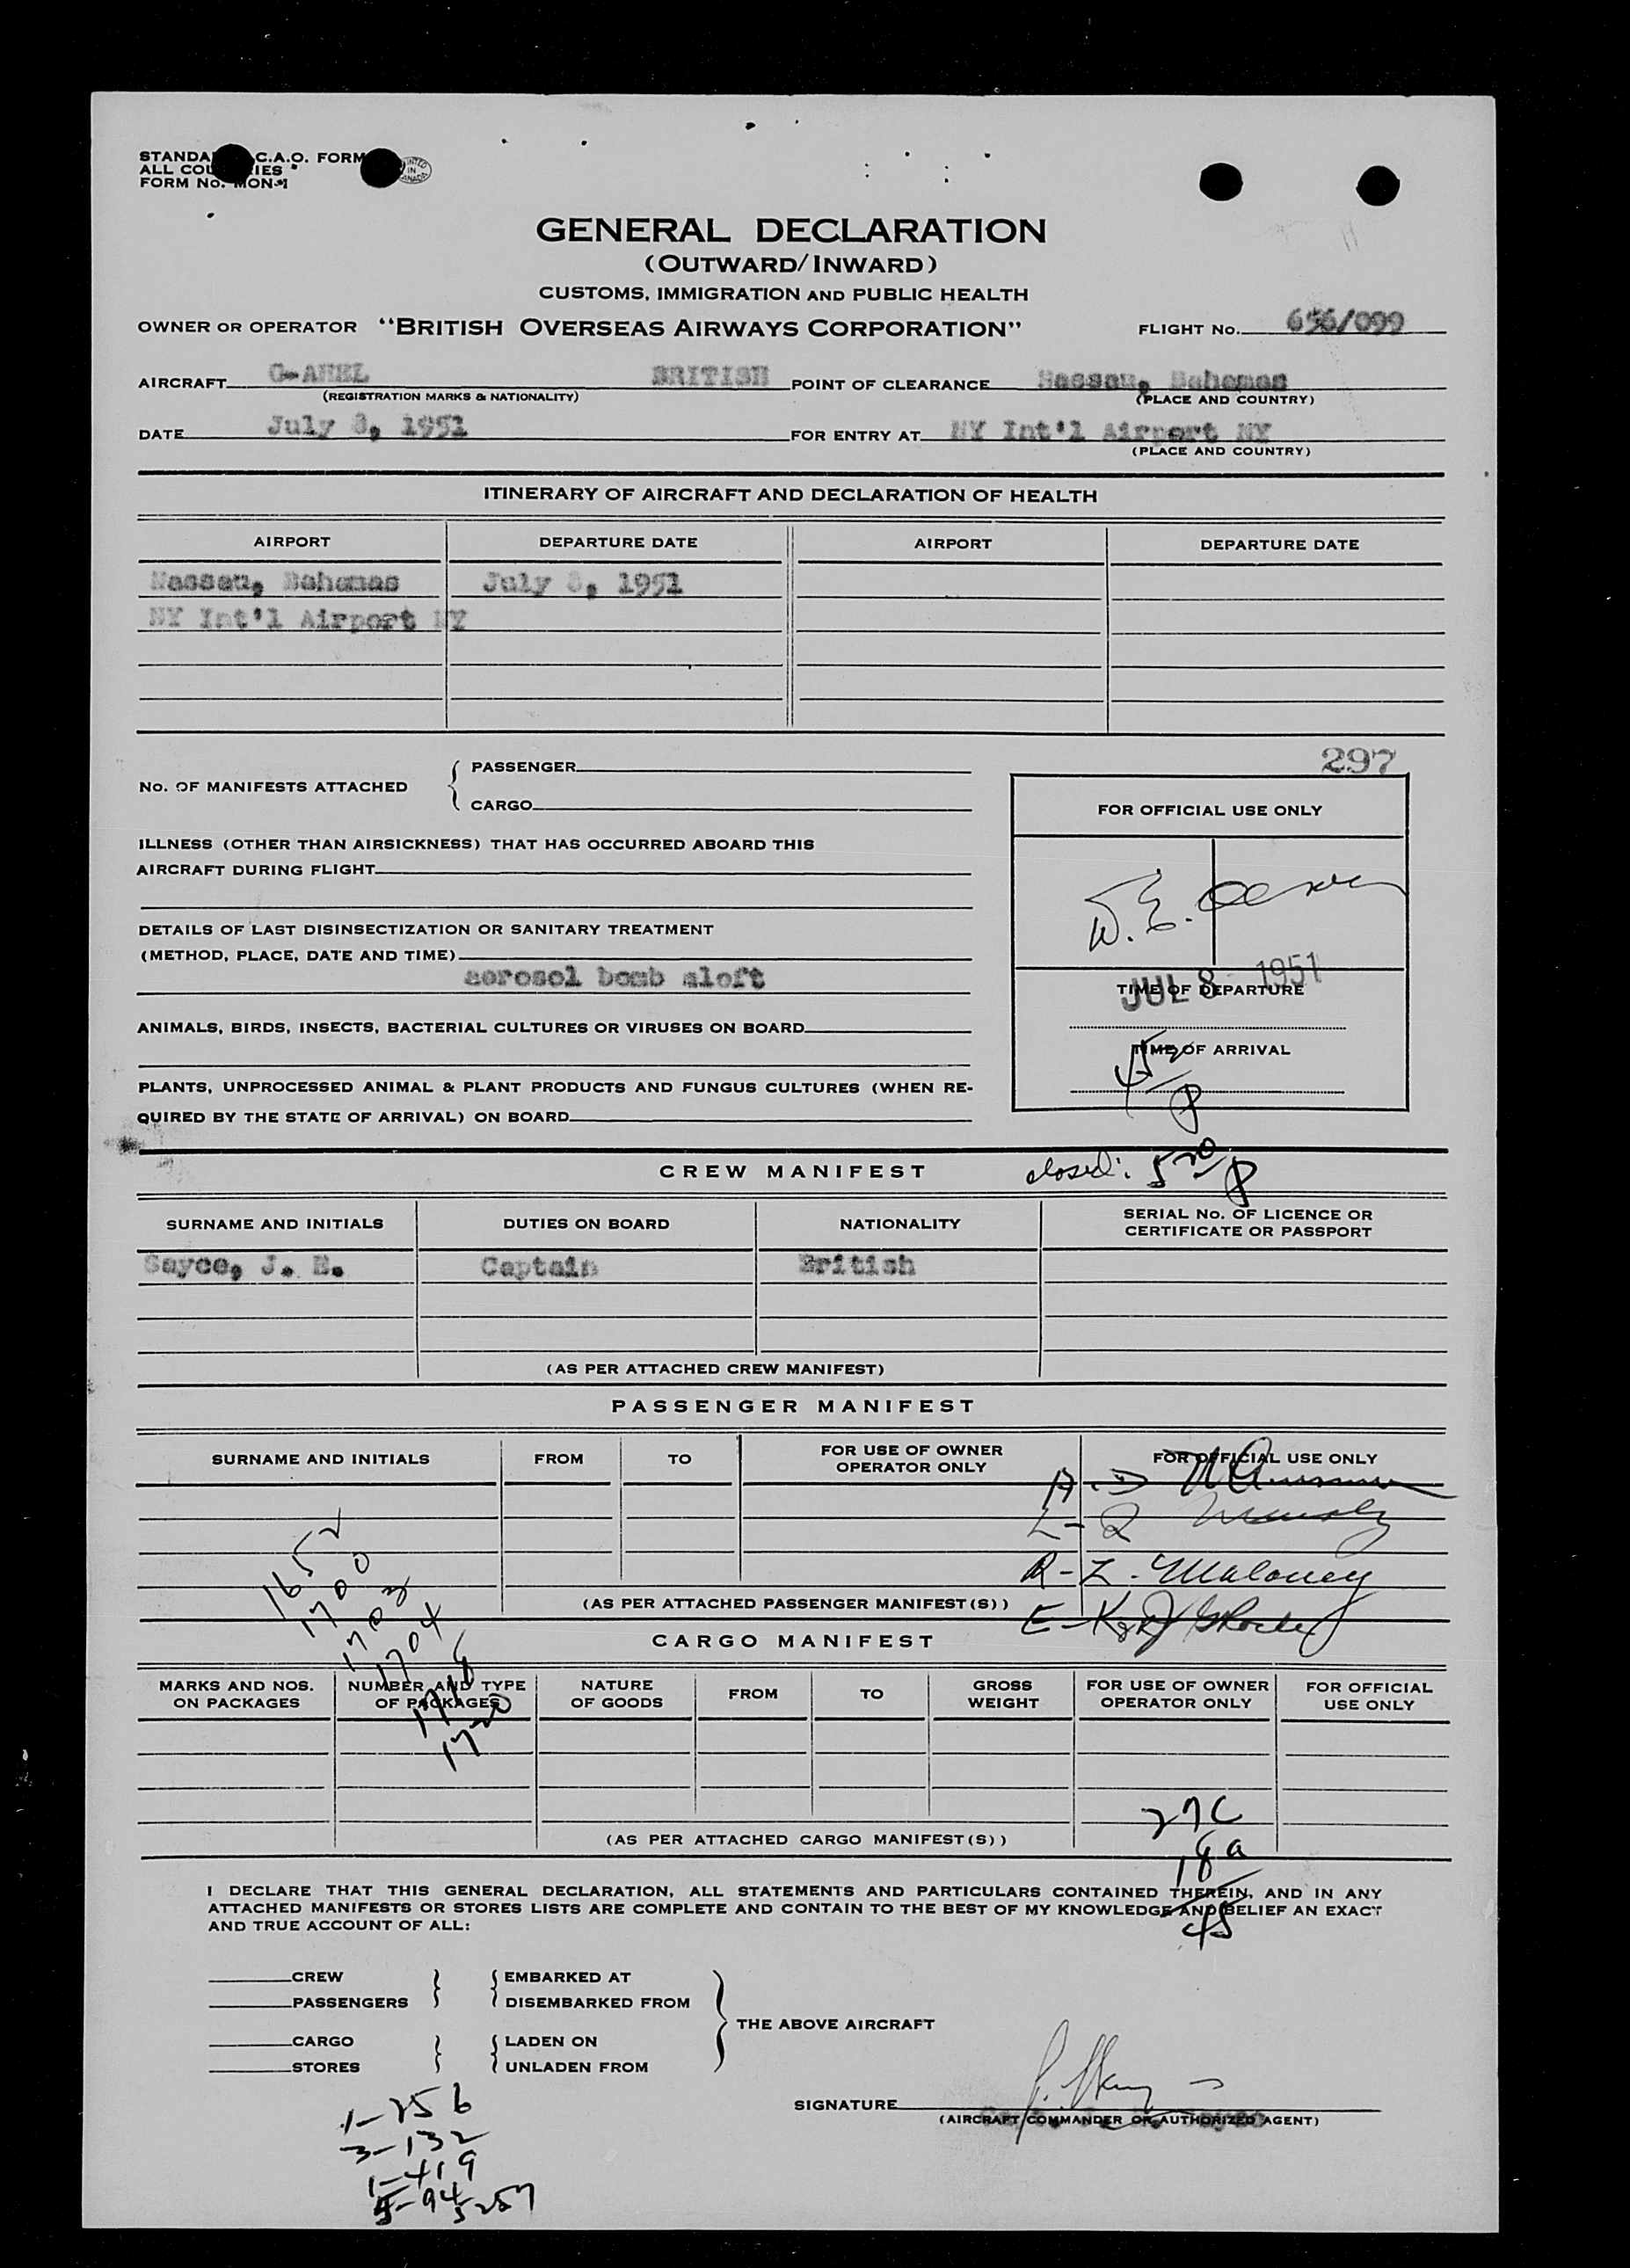 STANDA C.A.O. FORM
ALL COU IES
FORM No. MON-1
PRINTED IN CANADA
GENERAL DECLARATION
(OUTWARD/INWARD)
CUSTOMS, IMMIGRATION AND PUBLIC HEALTH
OWNER OR OPERATOR "BRITISH OVERSEAS AIRWAYS CORPORATION" FLIGHT No. 656/099
AIRCRAFT BRITISH POINT OF CLEARANCE Nassau, Bahamas
(REGISTRATION MARKS & NATIONALITY) (PLACE AND COUNTRY)
DATE July 8, 1951 FOR ENTRY AT NY Int'l Airport NY
(PLACE AND COUNTRY)
ITINERARY OF AIRCRAFT AND DECLARATION OF HEALTH
AIRPORT DEPARTURE DATE AIRPORT DEPARTURE DATE
Nassau, Bahamas July 8, 1951
NY Int'l Airport NY
297
No. OF MANIFESTS ATTACHED { PASSENGER
CARGO
FOR OFFICIAL USE ONLY
ILLNESS (OTHER THAN AIRSICKNESS) THAT HAS OCCURRED ABOARD THIS
AIRCRAFT DURING FLIGHT
W. E.
DETAILS OF LAST DISINSECTIZATION OR SANITARY TREATMENT
(METHOD, PLACE, DATE AND TIME)
aerosol bomb aloft
JUL 8 1951
TIME OF DEPARTURE
ANIMALS, BIRDS, INSECTS, BACTERIAL CULTURES OR VIRUSES ON BOARD
TIME OF ARRIVAL
PLANTS, UNPROCESSED ANIMAL & PLANT PRODUCTS AND FUNGUS CULTURES (WHEN RE-
QUIRED BY THE STATE OF ARRIVAL) ON BOARD
CREW MANIFEST closed: 5 20 P
SURNAME AND INITIALS DUTIES ON BOARD NATIONALITY SERIAL No. OF LICENCE OR
CERTIFICATE OR PASSPORT
Sayce, J. E. Captain British
(AS PER ATTACHED CREW MANIFEST)
PASSENGER MANIFEST
SURNAME AND INITIALS FROM TO FOR USE OF OWNER
OPERATOR ONLY FOR OFFICIAL USE ONLY
A-D
L-Q
R-Z - Maloney
E-K
(AS PER ATTACHED PASSENGER MANIFEST(S))
1652
1700
1703
1704
1716
1720
CARGO MANIFEST
MARKS AND NOS.
ON PACKAGES NUMBER AND TYPE
OF PACKAGES NATURE
OF GOODS FROM TO GROSS
WEIGHT FOR USE OF OWNER
OPERATOR ONLY FOR OFFICIAL
USE ONLY
27C
18a
45
(AS PER ATTACHED CARGO MANIFEST(S))
I DECLARE THAT THIS GENERAL DECLARATION, ALL STATEMENTS AND PARTICULARS CONTAINED THEREIN, AND IN ANY
ATTACHED MANIFESTS OR STORES LISTS ARE COMPLETE AND CONTAIN TO THE BEST OF MY KNOWLEDGE AND BELIEF AN EXACT
AND TRUE ACCOUNT OF ALL:
CREW } { EMBARKED AT
PASSENGERS } { DISEMBARKED FROM
} THE ABOVE AIRCRAFT
CARGO } { LADEN ON
STORES } { UNLADEN FROM
SIGNATURE
(AIRCRAFT COMMANDER OR AUTHORIZED AGENT)
1-256
3-132
1-419